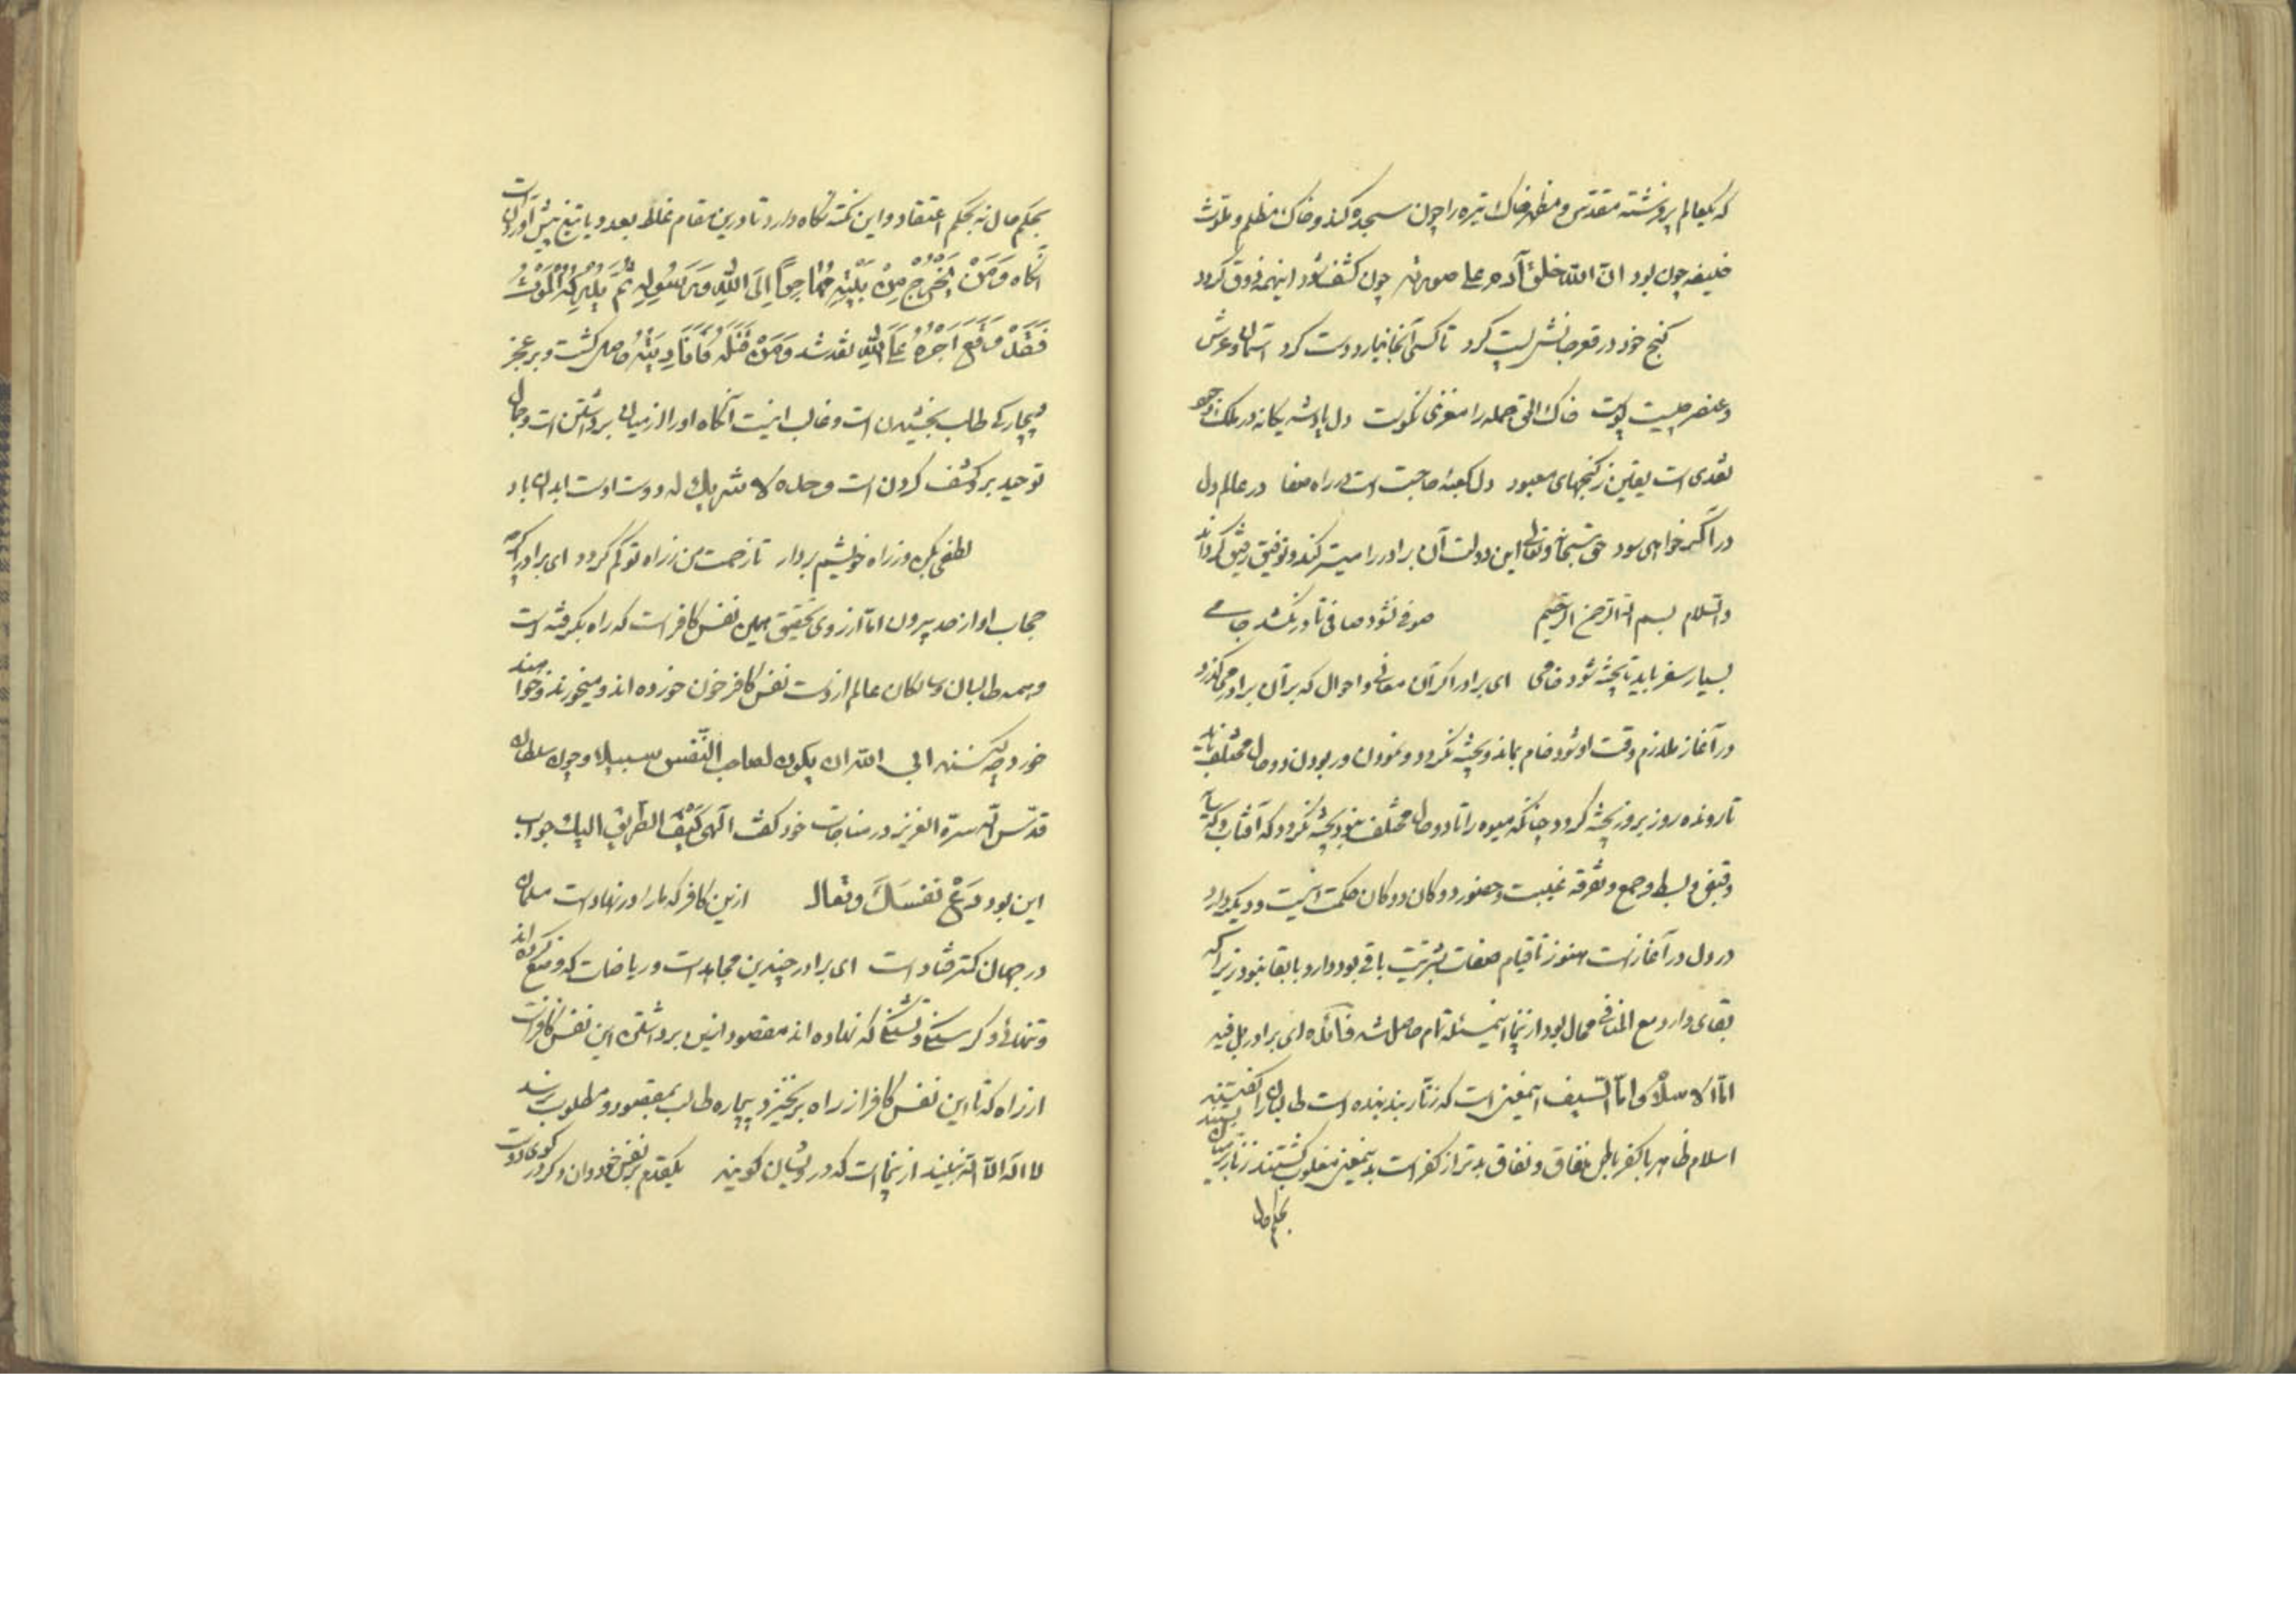 که بعالم پر فرشته مقدس و مطهر خاک تیره را چون سجده کند و خاک مظلم و ملوث
خلیفه چون بود ان الله خلق آدم علی صورته چون کشف شود اینهمه ذوق گردد
گنج خود در قعر جانش پست کرد تا کسی آنجا نیارد دست کرد آسمان و عرش
و عنصر چیست پوست خاک الحق جمله را مغزی نکوست دل پادشه یگانه در ملک وجود
نقدی است یقین ز گنجهای معبود دل کعبهٔ حاجت است در راه صفا در عالم دل
درآ گر خواهی سود حق سبحانه و تعالی این دولت آن برادر را میسر کند و توفیق رفیق گرداند
والسلام بسم الله الرحمن الرحیم صوفی نشود صافی تا در نکشد جامی
بسیار سفر باید تا پخته شود خامی ای برادر اگر آن معانی و احوال که بر آن برادر میگذرد
در آغاز ملازم وقت او شود خام بماند و پخته نگردد و نمودن و ربودن دو حال مختلف باید
تا رونده روز بروز پخته گردد چنانکه میوه را تا دو حال مختلف نبود پخته نگردد که آفتاب و که سایه
و قبض و بسط و جمع و تفرقه غیبت و حضور دوکان دوکان حکمت اینست و دیگر دارد
در دل در آغازست هنوز تا قیام صفات بشریت باقی بود دارد با بقا نبود زیرا که
بقای دارد مع المنافی محال بود ازینجا اینمسئله تام حاصل شد فائده ای برادر بل فیه
اما الاسلام و اما السیف اینمعنی است که زنار بند بنده است طالبان را گفتند
اسلام ظاهر با کفر باطن نفاق و نفاق بدتر از کفر است بدینمعنی مغلوب گشتند زنار بر میان بستند
بحکم حال
بحکم حال نه بحکم اعتقاد و این نکته نگاه دارد تا درین مقام غلط بعد و یا تیغ پیش آوردن است
آنگاه وَمَنْ یَخْرُجْ مِنْ بَیْتِهِ مُهَاجِراً إِلَی اللهِ وَرَسُولِهِ ثُمَّ یُدْرِکْهُ الْمَوْتُ
فَقَدْ وَقَعَ أَجْرُهُ عَلَی اللهِ نقد شد وَمَنْ قَتَلَهُ فَأَنَا دِیَتُهُ حاصل گشت و بر عجز
بیچارگی طالب بخشیدن است و غالب اینست آنگاه او را از میان برداشتن است و جمال
توحید بر و کشف کردن است وحده لا شریک له دوست اوست ابدان باد
لطفی بکن و ز راه خویشم بردار تا زحمت من ز راه تو کم گردد ای برادر اگرچه
حجاب او از حد بیرون اما از روی تحقیق همین نفس کافر است که راه بگرفته است
و همه طالبان و سالکان عالم از دست نفس کافر خون خورده اند و میخورند و خواهند
خورد چه کنند ابی الله ان یکون لصاحب النفس سبیلا و چون سلطان
قدس الله سره العزیز در مناجات خود گفت الهی کَیْفَ الطریق الیک جواب
این بود دَعْ نَفْسَکَ وتعال ازین کافر که ما را در نهادست مسلمان
در جهان کمتر فتادست ای برادر چندین مجاهدات و ریاضات که وضع کرده اند
و تنهائی و گرسنگی و تشنگی که نهاده اند مقصود ازین برداشتن این نفس کافر است
از راه که تا این نفس کافر از راه بر نخیزد بیچاره طالب بمقصود و مطلوب نرسد
لا اله الا الله نبیند ازینجاست که درویشان گویند یکقدم بر نفس خود وان دگر در کوی دوست